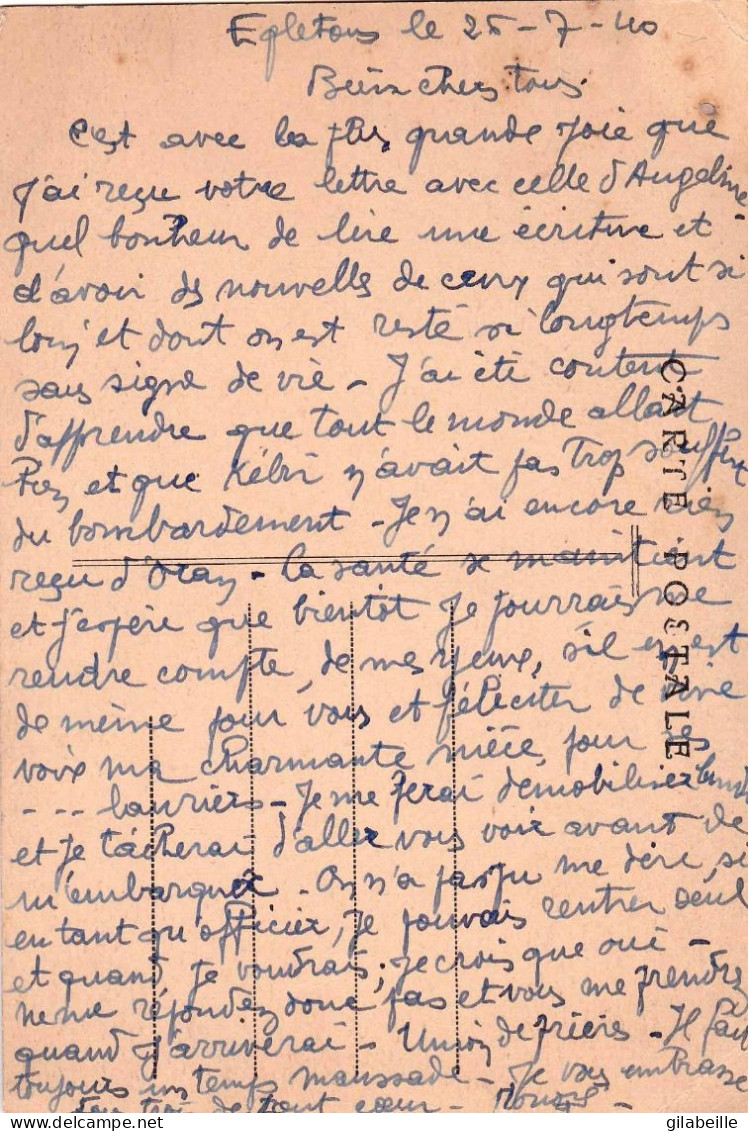 Egletons le 25-7-40
Bien chers tous
C'est avec la plus grande joie que
J'ai reçu votre lettre avec celle d'Angeline
quel bonheur de lire une écriture et
d'avoir des nouvelles de ceux qui sont si
loin et dont on est resté si longtemps
sans signe de vie - J'ai été content
d'apprendre que tout le monde allait
bien et que Kébir n'avait pas trop souffert
du bombardement - Je n'ai encore rien
reçu d'Oran - La santé se maintient
et j'espère que bientôt je pourrais me
rendre compte, de mes yeux, s'il en est
de même pour vous et féliciter de vive
voix ma charmante nièce, pour ses
--- lauriers - Je me ferai démobiliser
et je tâcherai d'aller vous voir avant de
m'embarquer - On n'a pas pu me dire, si
en tant qu'officier, je pouvais rentrer seul
et quand je voudrais; je crois que oui -
ne me répondez donc pas et vous me prendrez
quand j'arriverai - Union de prières - Il fait
toujours un temps maussade - Je vous embrasse
de tout cœur -
CARTE POSTALE
gilabeille